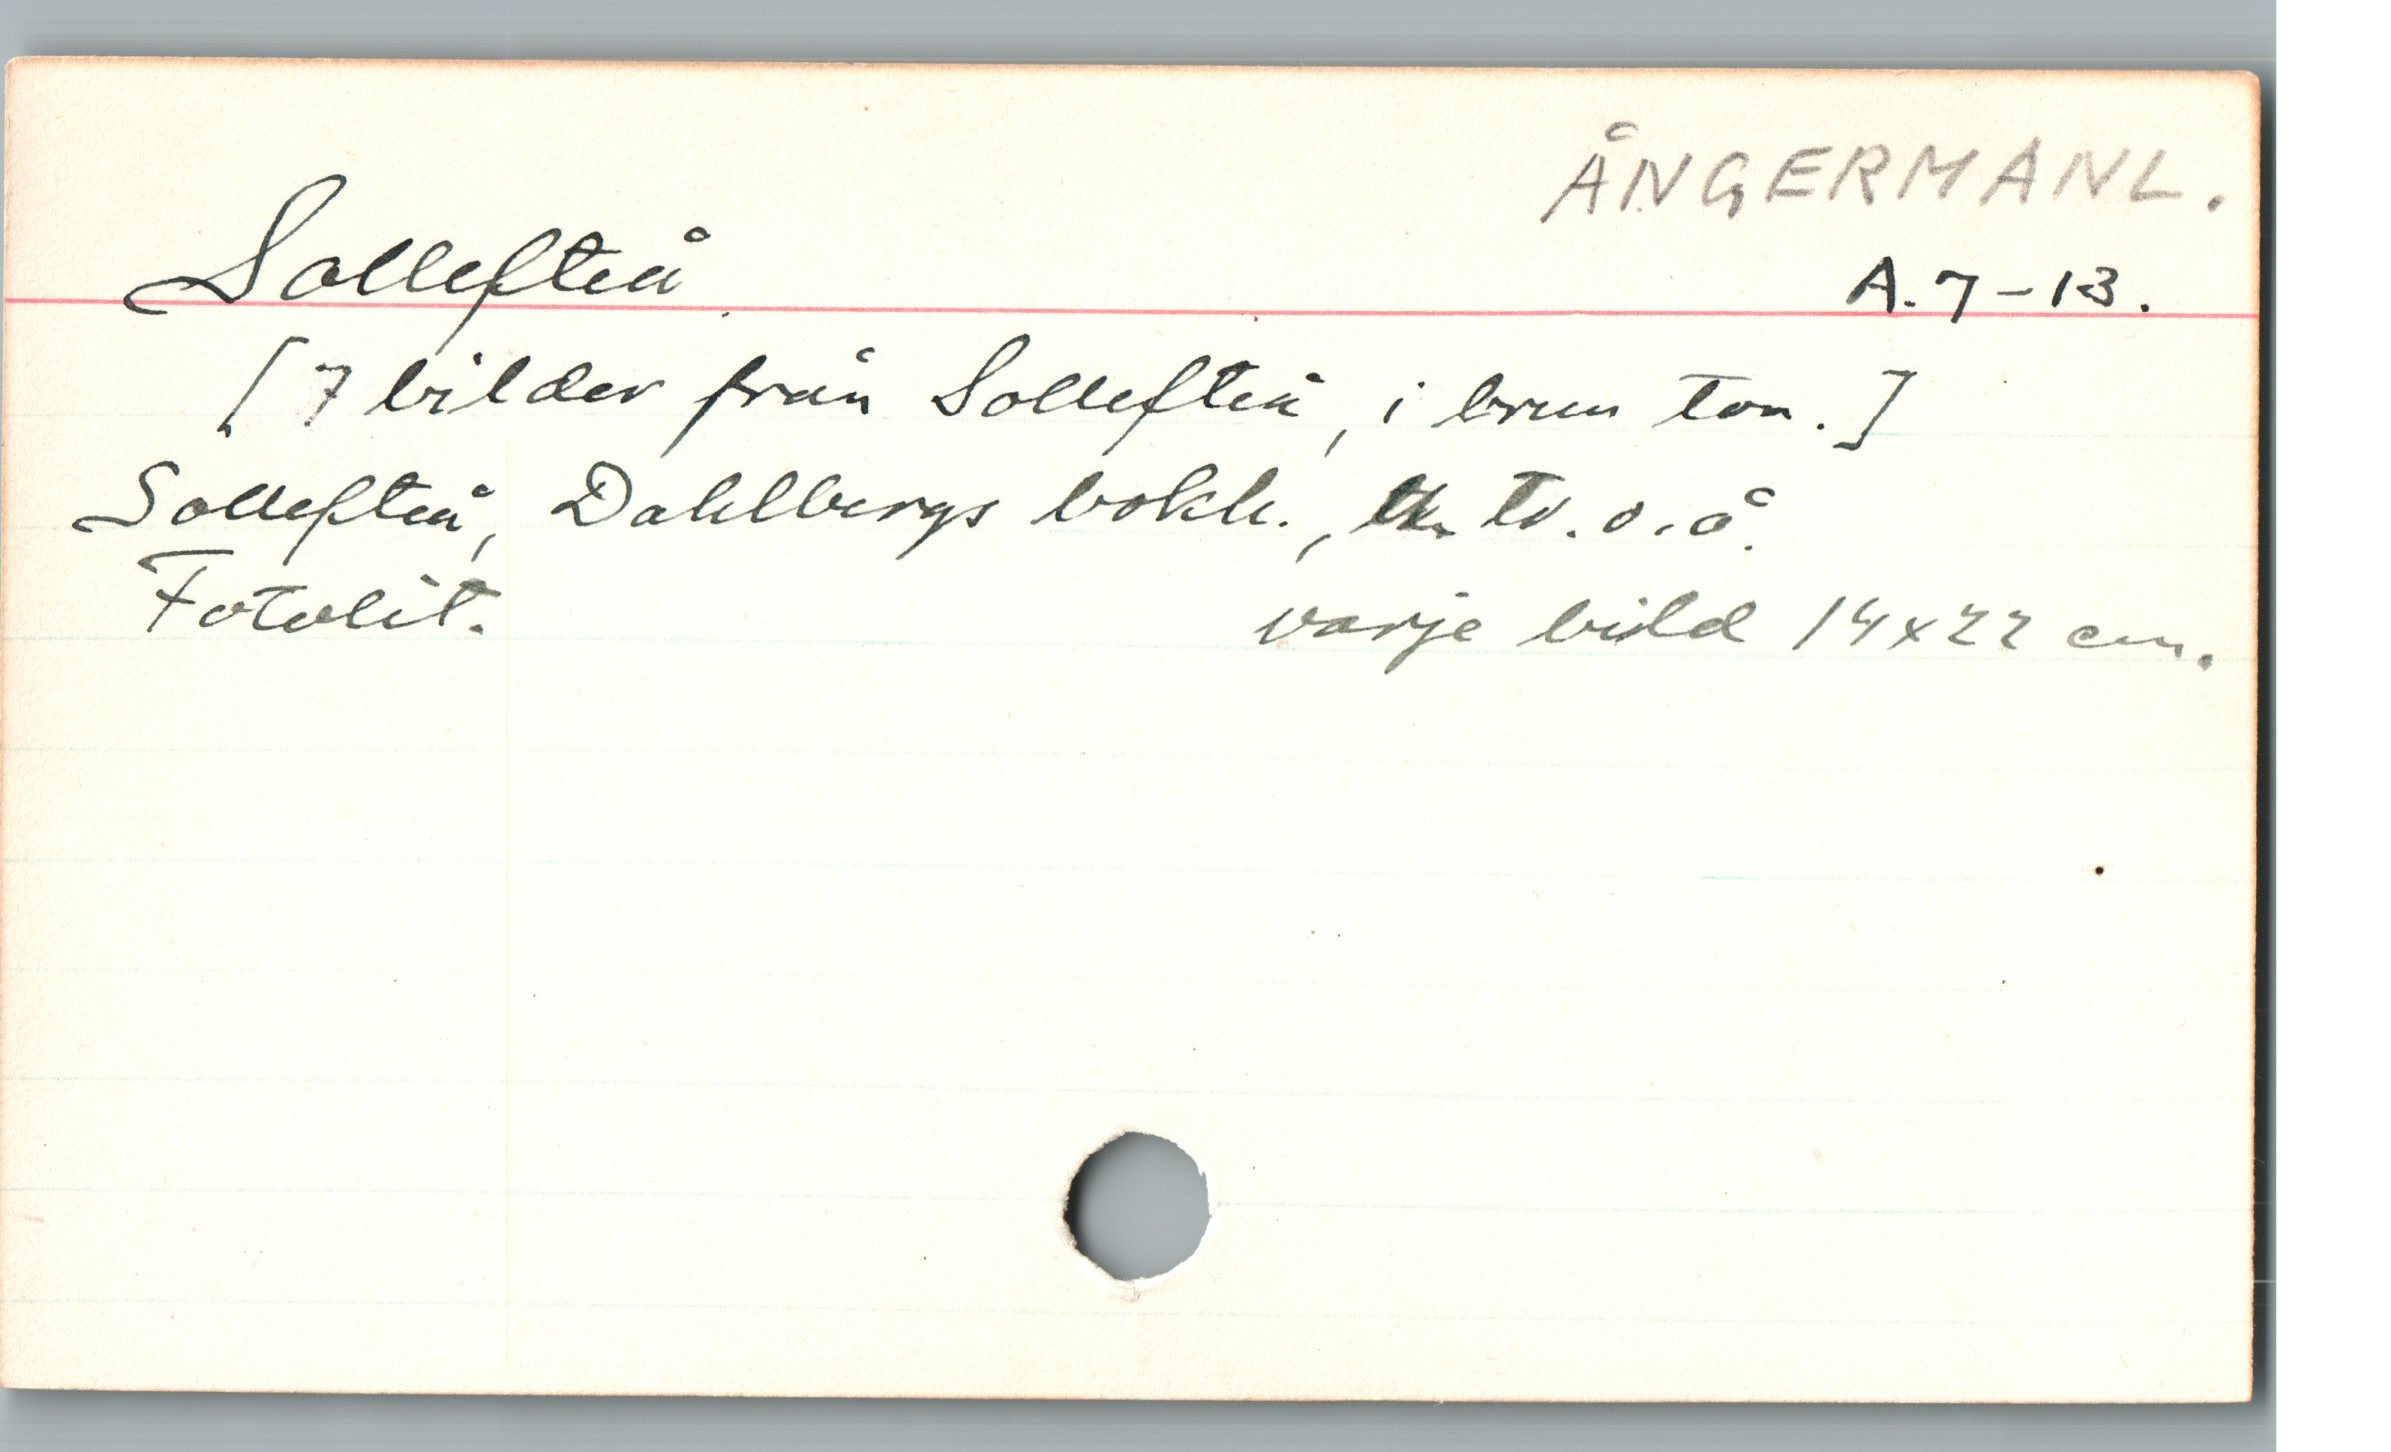 ÅNGERMANL.
Sollefteå
A. 7-13.
[7 bilder från Sollefteå, i brun ton.]
Sollefteå, Dahlbergs bokh., tr. o. å.
Fotolit. varje bild 14x22 cm.